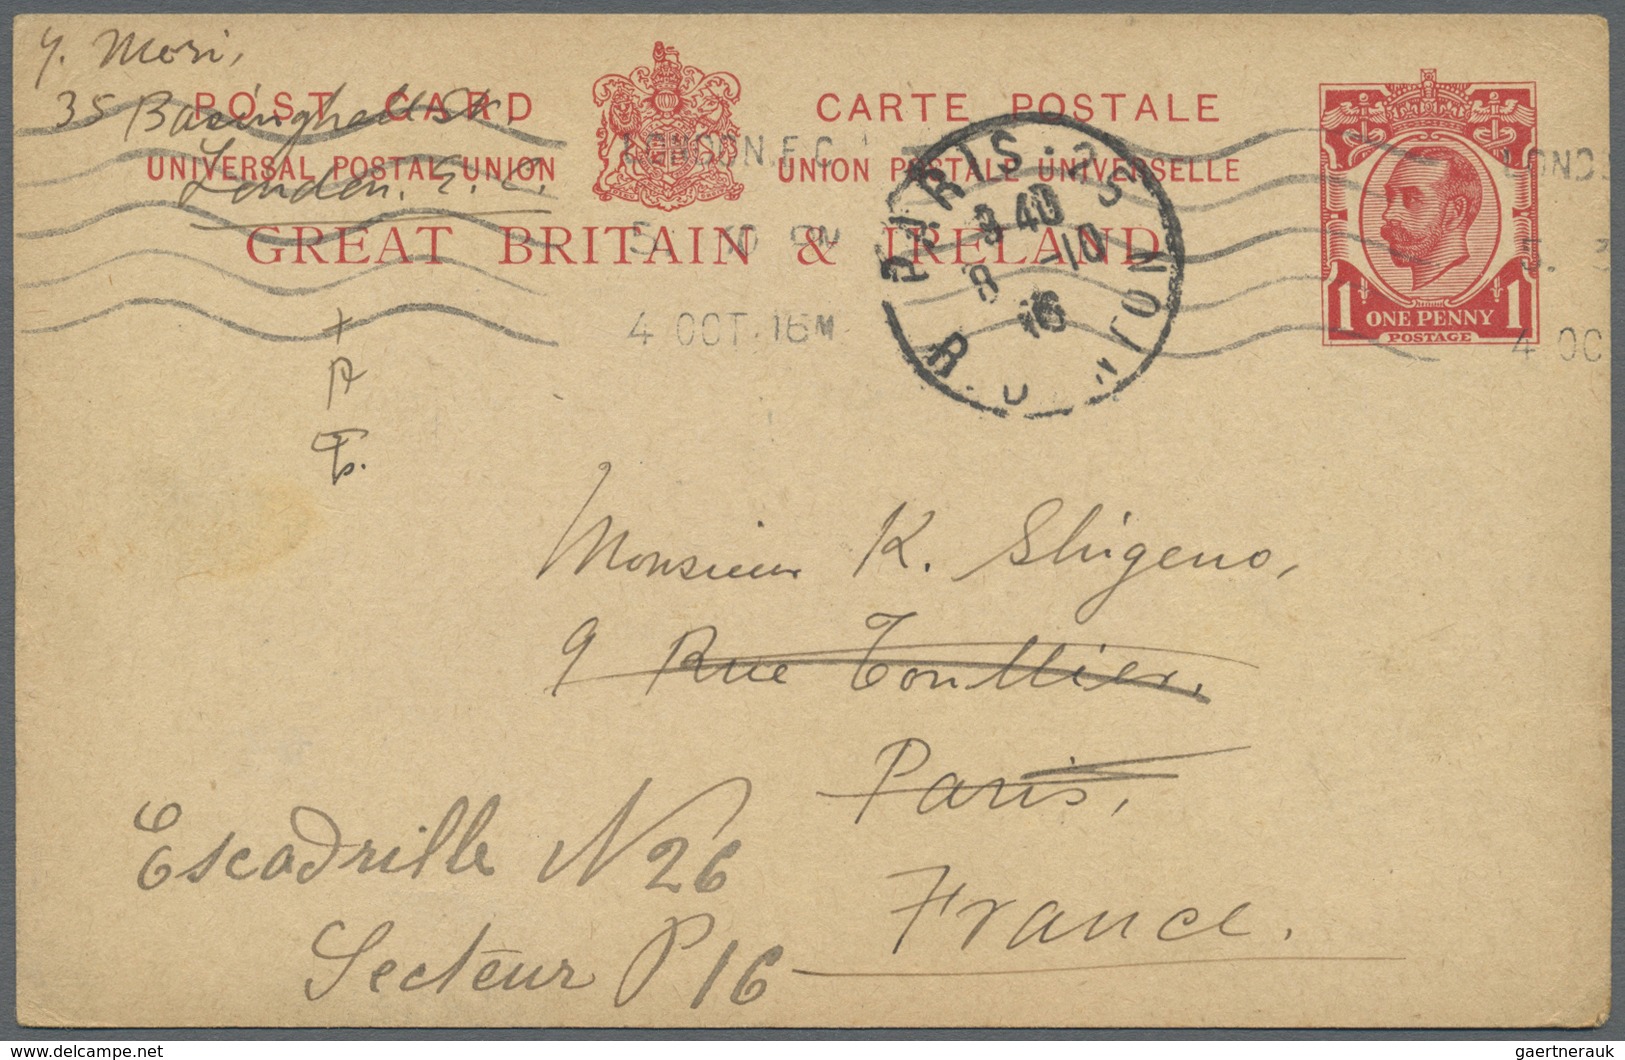 Y. Mori,
35 Basinghall St.
London. E. C.
POST CARD
CARTE POSTALE
UNIVERSAL POSTAL UNION
UNION POSTALE UNIVERSELLE
GREAT BRITAIN & IRELAND
LONDON. E.C
4 OCT. 16
PARIS
3 40
8 -10
16
1 1
ONE PENNY
POSTAGE
LOND
5. 3
4 OC
Monsieur K. Shigeno,
9 Rue Toullier,
Paris,
France.
Escadrille N 26
Secteur P 16
gaertnerauk